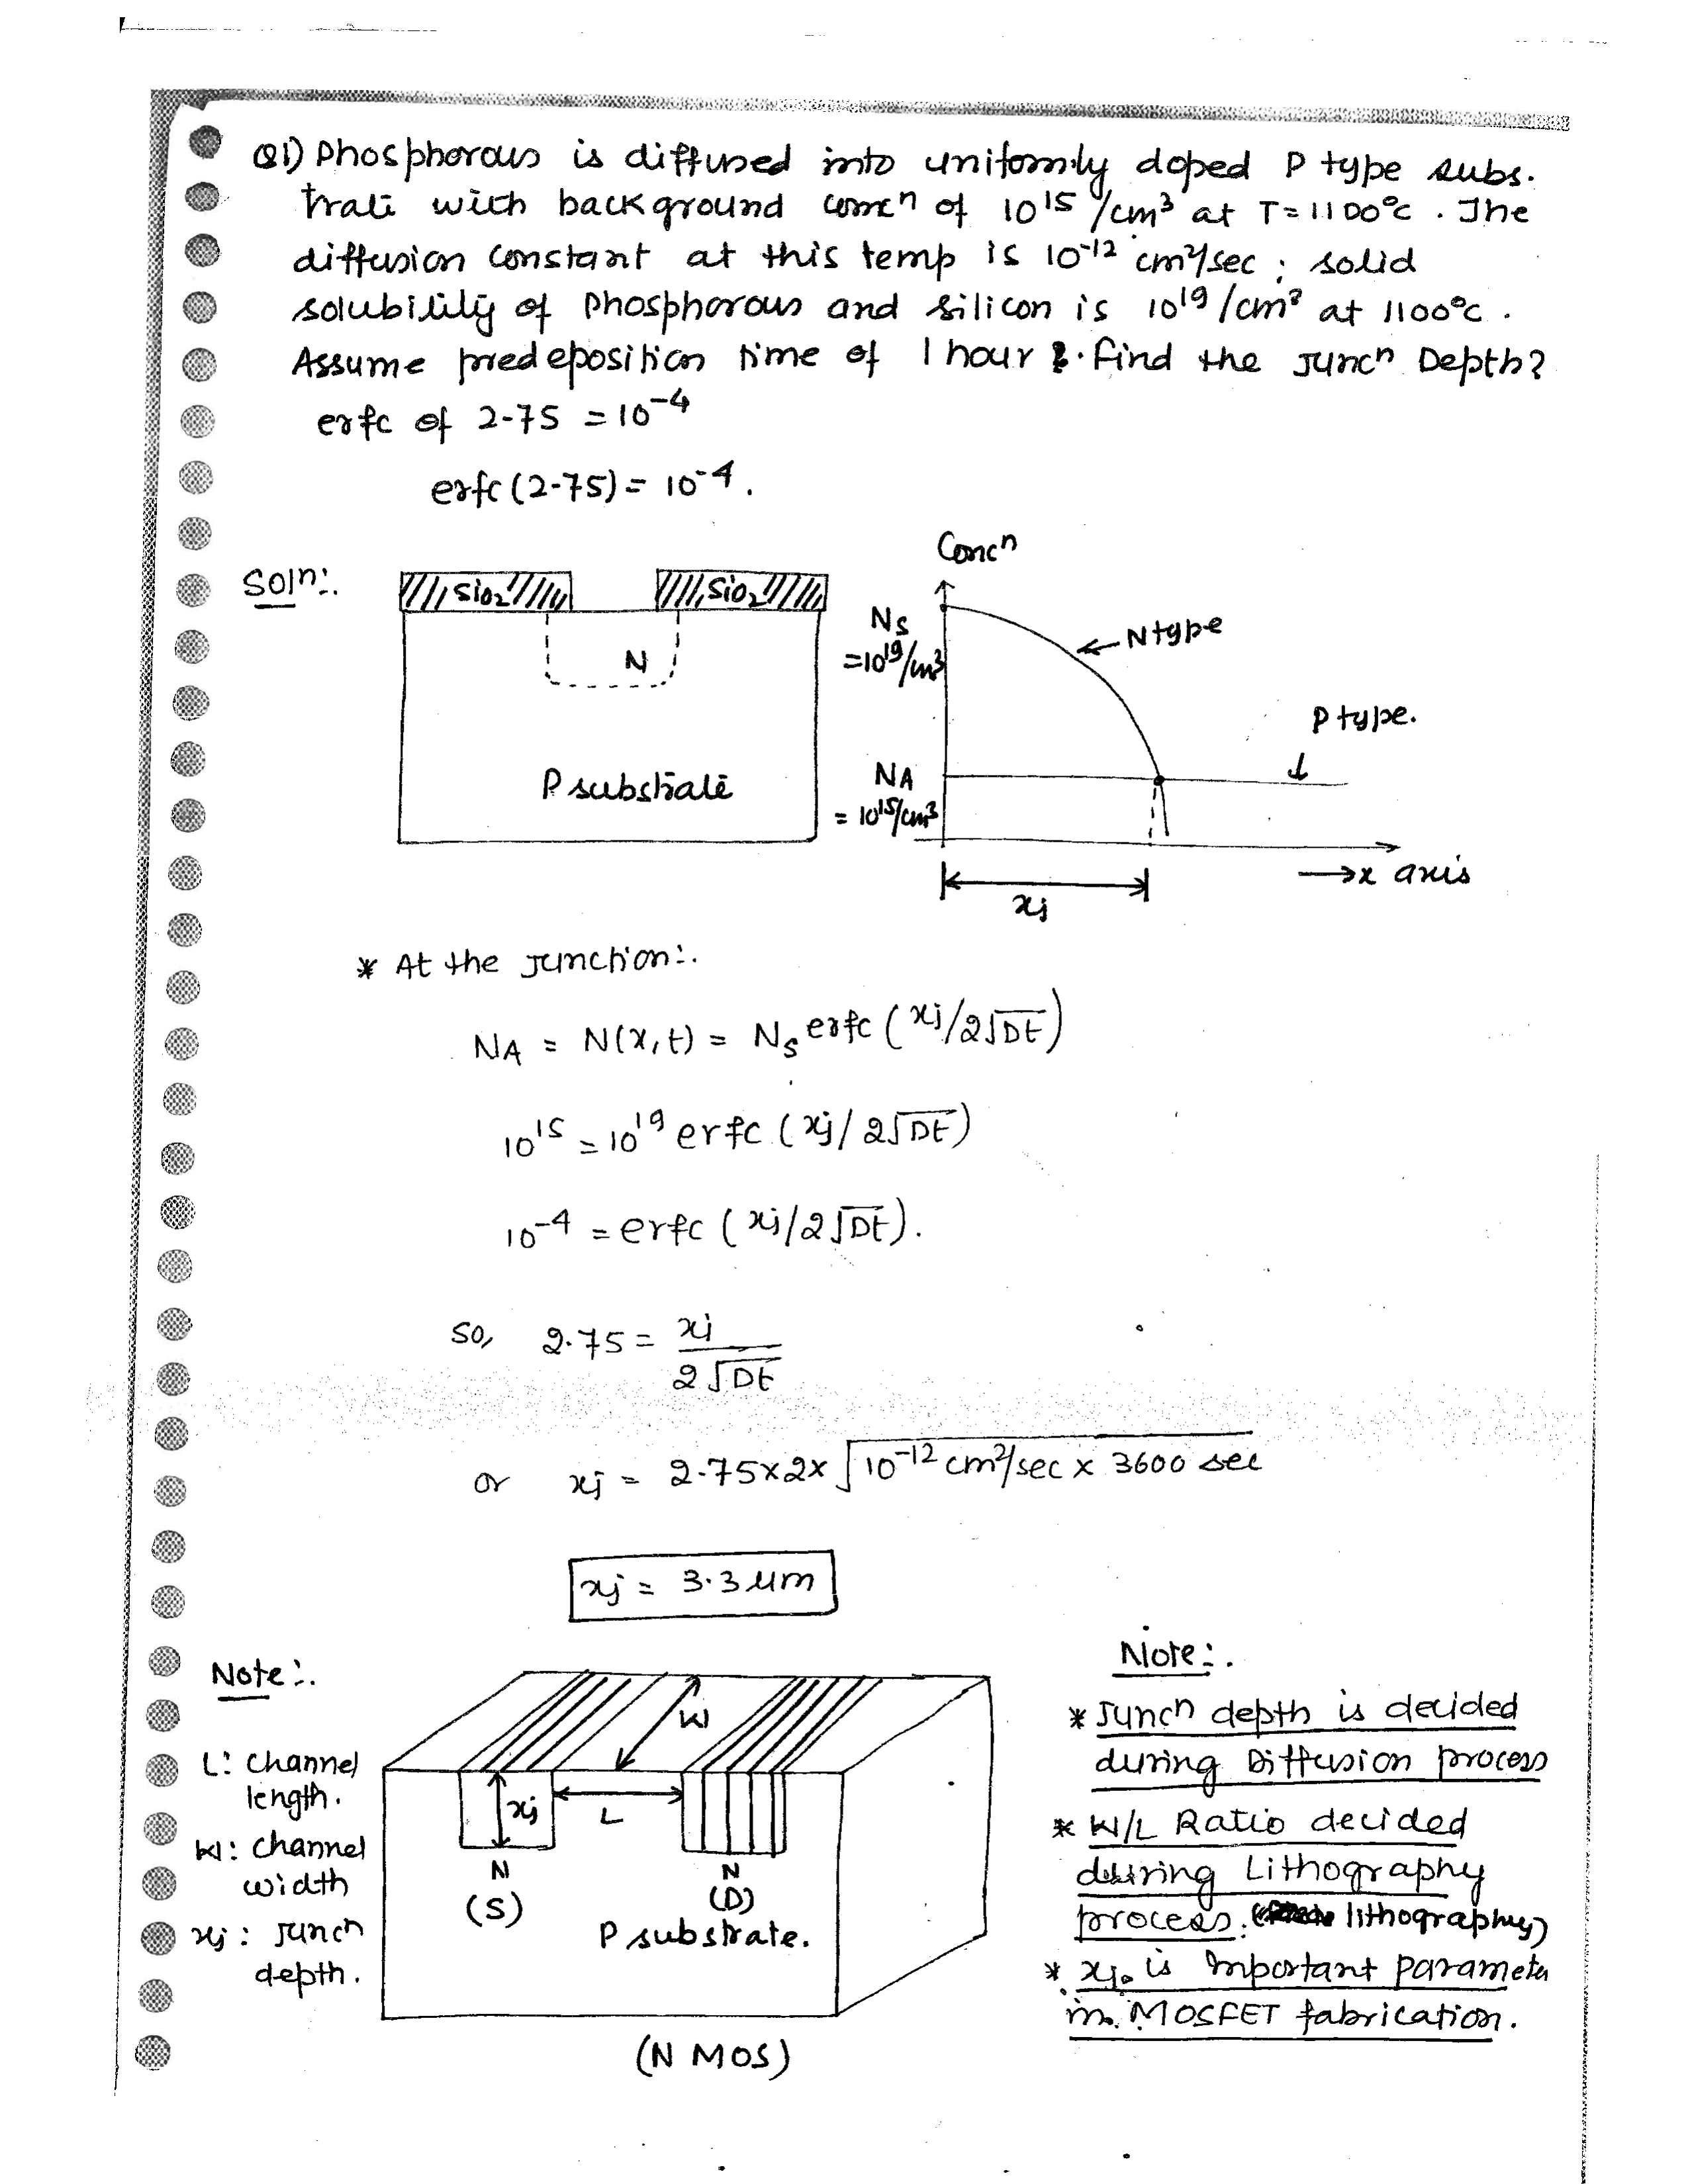 Q1) Phosphorous is diffused into uniformly doped P type subs.
trate with background concn of 10^15 /cm^3 at T=1100°c . The
diffusion constant at this temp is 10^-12 cm^2/sec ; solid
solubility of Phosphorous and silicon is 10^19 /cm^3 at 1100°c .
Assume predeposition time of 1 hour . Find the Juncn Depth?
erfc of 2.75 = 10^-4
erfc (2.75) = 10^-4 .
Soln:.
SiO2
SiO2
N
P substrate
Concn
NS
= 10^19/cm^3
← N type
P type.
↓
NA
= 10^15/cm^3
→ x axis
xj
* At the Junction:.
NA = N(x,t) = NS erfc ( xj/2√Dt )
10^15 = 10^19 erfc ( xj/ 2√Dt )
10^-4 = erfc ( xj/2√Dt ) .
So, 2.75 = xj / 2√Dt
or xj = 2.75x2x √10^-12 cm^2/sec x 3600 sec
xj = 3.3 µm
Note:.
L: Channel
length.
W: Channel
width
xj : Juncn
depth.
W
xj
L
N
(S)
N
(D)
P substrate.
(N MOS)
Note:.
* Juncn depth is decided
during Diffusion process
* W/L Ratio decided
during Lithography
process. ( lithography)
* xj is Important parameter
in MOSFET fabrication.